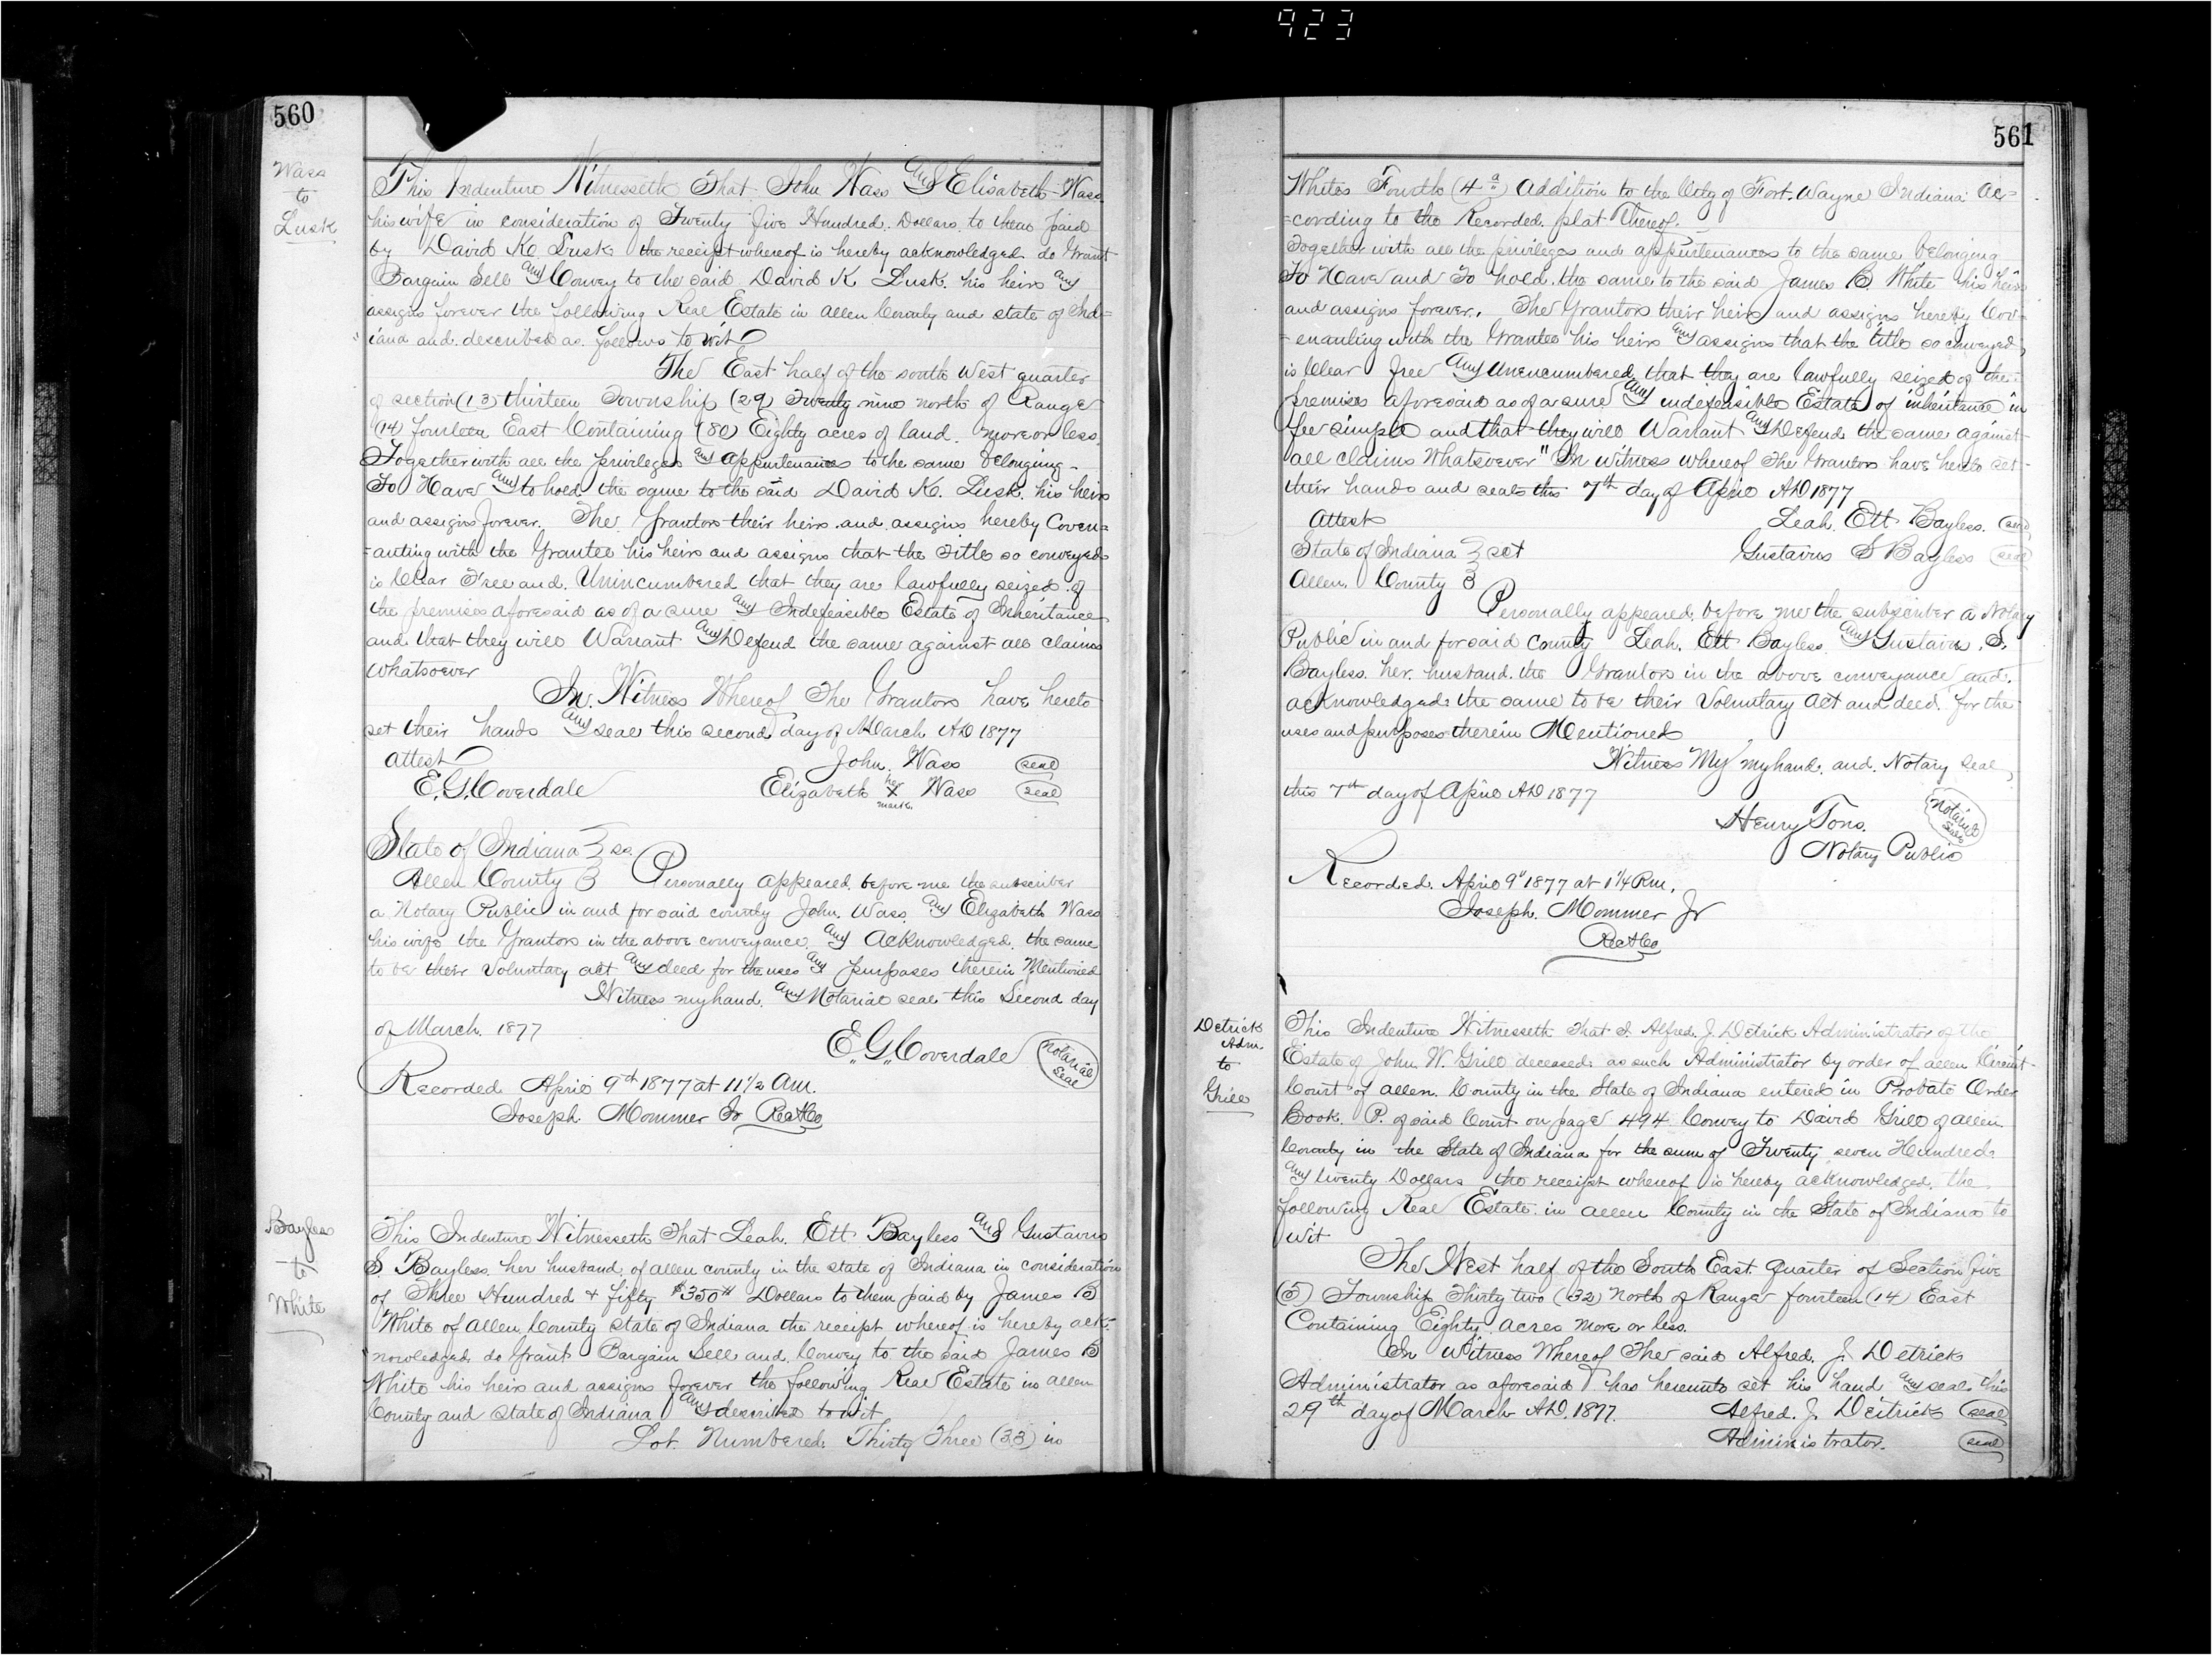 923
560
Wass
to
Lusk
This Indenture Witnesseth That John Wass and Elisabeth Wass
his wife in consideration of Twenty five Hundred Dollars to them paid
by David K. Lusk the receipt whereof is hereby acknowledged do Grant
Bargain Sell and Convey to the said David K Lusk his heirs and
assigns forever the following Real Estate in allen County and state of Ind=
iana and described as follows to wit
The East half of the south West quarter
of section (13) thirteen Township (29) Twenty nine north of Range
(14) fourteen East Containing (80) Eighty acres of land more or less.
Together with all the privileges and appurtenances to the same belonging
To Have and to hold the same to the said David K. Lusk his heirs
and assigns forever. The Grantors their heirs and assigns hereby Coven=
=anting with the Grantee his heirs and assigns that the Title so conveyed
is Clear Free and Unincumbered that they are lawfully seized of
the premises aforesaid as of a sure and Indefeasible Estate of Inheritance
and that they will Warrant and Defend the same against all claims
whatsoever
In Witness Whereof The Grantors have hereto
set their hands and seal this second day of March AD 1877
attest John Wass (seal)
E. G. Coverdale Elizabeth her X mark Wass (seal)
State of Indiana } ss.
Allen County } Personally appeared before me the subscriber
a Notary Public in and for said county John Wass and Elizabeth Wass
his wife the Grantors in the above conveyance and acknowledged the same
to be their Voluntary act and deed for the uses and purposes therein Mentioned
Witness my hand and Notarial seal this Second day
of March 1877
E. G. Coverdale (Notarial Seal)
Recorded April 9th 1877 at 11 1/2 Am.
Joseph Mommer Jr RecACo
Bayless
to
White
This Indenture Witnesseth That Leah Ett Bayless and Gustavus
S. Bayless her husband of allen county in the state of Indiana in consideration
of Three Hundred & fifty $350 Dollars to them paid by James B
White of allen County State of Indiana the receipt whereof is hereby ack-
nowledged do Grant Bargain Sell and Convey to the said James B
White his heirs and assigns forever the following Real Estate in allen
County and State of Indiana and described to wit
Lot Numbered Thirty Three (33) in
561
Whites Fourth (4th) Addition to the City of Fort Wayne Indiana Ac=
=cording to the Recorded plat Thereof.
Together with all the privileges and appurtenances to the same belonging
To Have and To hold the same to the said James B. White his heirs
and assigns forever. The Grantors their heirs and assigns hereby Cov-
-enanting with the Grantee his heirs and assigns that the title so conveyed
is Clear free and Unencumbered that they are lawfully seized of the
premises aforesaid as of a sure and indefeasible Estate of inheritance in
fee simple and that they will Warrant and Defend the same against
all claims Whatsoever" In witness whereof The Grantors have hereto set
their hands and seals this 7th day of April AD 1877
Attest Leah Ett Bayless (seal)
State of Indiana } sct Gustavus S Bayless (seal)
Allen County }
Personally appeared before me the subscriber a Notary
Public in and for said County Leah Ett Bayless and Gustavus S.
Bayless her husband the Grantors in the above conveyance and
acknowledged the same to be their Voluntary Act and deed for the
uses and purposes therein Mentioned
Witness My my hand and Notary Seal
this 7th day of April AD 1877
Henry Tons. (Notarial Seal)
Notary Public
Recorded April 9" 1877 at 1 1/4 P.m.
Joseph Mommer Jr
RecACo
Detrick
Adm.
to
Grill
This Indenture Witnesseth That I Alfred J. Detrick Administrator of the
Estate of John W. Grill deceased as such Administrator by order of allen Circuit
Court of allen County in the State of Indiana entered in Probate Order
Book P. of said Court on page 494 Convey to David Grill of allen
County in the State of Indiana for the sum of Twenty seven Hundred
and twenty Dollars the receipt whereof is hereby acknowledged the
following Real Estate in allen County in the State of Indiana to
wit
The West half of the South East quarter of Section five
(5) Township Thirty two (32) North of Range fourteen (14) East
Containing Eighty acres more or less.
In Witness Whereof The said Alfred J. Detrick
Administrator as aforesaid has hereunto set his hand and seal this
29th day of March AD. 1877. Alfred. J. Deitrick (seal)
Administrator. (seal)